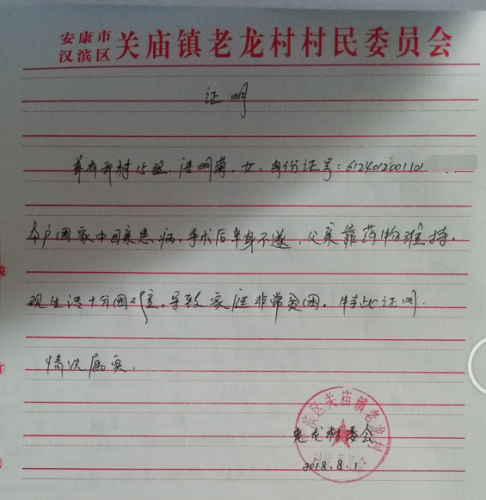 安康市
汉滨区 关庙镇老龙村村民委员会
证明
兹有我村 女、身份证号：612401200110
本户因家中母亲患病，手术后半身不遂，父亲靠药物维持。
现生活十分困难。导致家庭非常贫困。特此证明.
情况属实.
老龙村委会
2018.8.1
汉滨区关庙镇老龙村